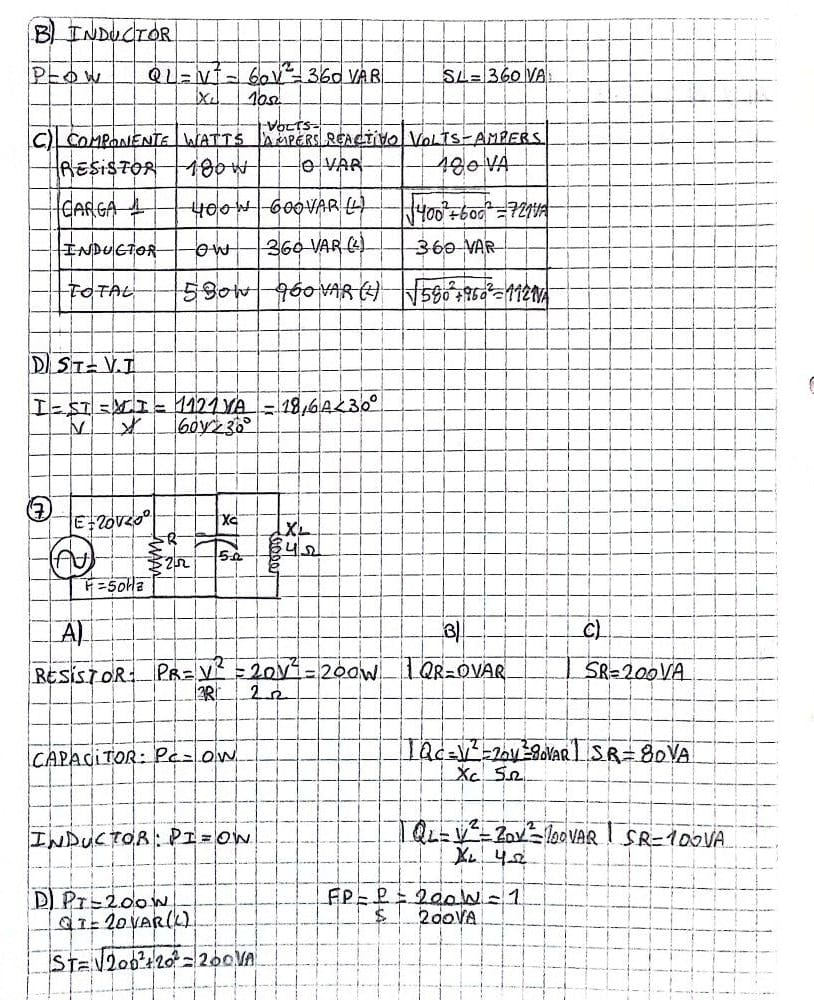 B) INDUCTOR
P=0W QL=V²/XL=60V²/10Ω=360 VAR SL=360 VA
C) COMPONENTE WATTS VOLTS-AMPERS REACTIVO VOLTS-AMPERS
RESISTOR 180W 0 VAR 180 VA
CARGA 1 400W 600VAR (L) √400²+600²=721VA
INDUCTOR 0W 360 VAR (L) 360 VAR
TOTAL 580W 960 VAR (L) √580²+960²=1121VA
D) ST=V.I
I=ST/V=V.I/V=1121VA/60V<30°=18,6A<30°
7
E=20V<0° XC XL
R 2Ω 5Ω 4Ω
F=50Hz
A) B) C)
RESISTOR: PR=V²/R=20V²/2Ω=200W | QR=0VAR | SR=200VA
CAPACITOR: PC=0W | QC=V²/XC=20V²/5Ω=80VAR | SR=80VA
INDUCTOR: PI=0W | QL=V²/XL=20V²/4Ω=100VAR | SR=100VA
D) PT=200W FP=P/S=200W/200VA=1
QT=20VAR(L)
ST=√200²+20²=200VA